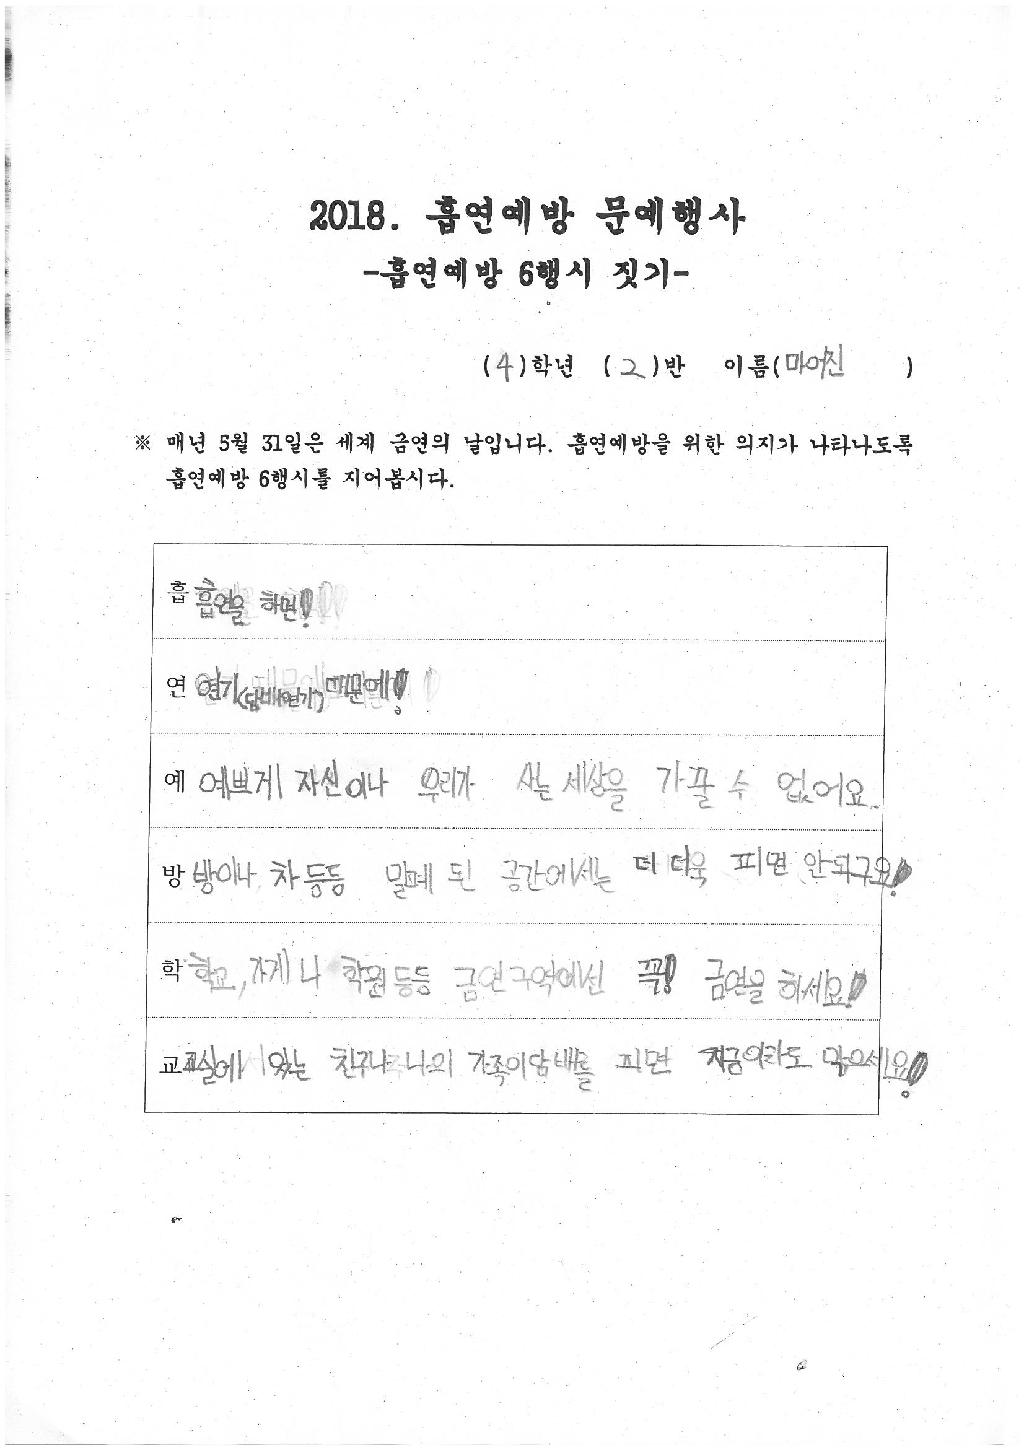 2018. 흡연예방 문예행사
-흡연예방 6행시 짓기-
(4)학년 (2)반 이름(마어진)
※ 매년 5월 31일은 세계 금연의 날입니다. 흡연예방을 위한 의지가 나타나도록
흡연예방 6행시를 지어봅시다.
흡 흡연을 하면!
연 연기(담배연기) 때문에!
예 예쁘게 자신이나 우리가 사는 세상을 가꿀 수 없어요.
방 방이나 차 등등 밀폐 된 공간에서는 더 더욱 피면 안돼구요!
학 학교, 가게나 학원 등등 금연구역에선 꼭! 금연을 하세요!
교 교실에 있는 친구나 나의 가족이 담배를 피면 지금이라도 막으세요!